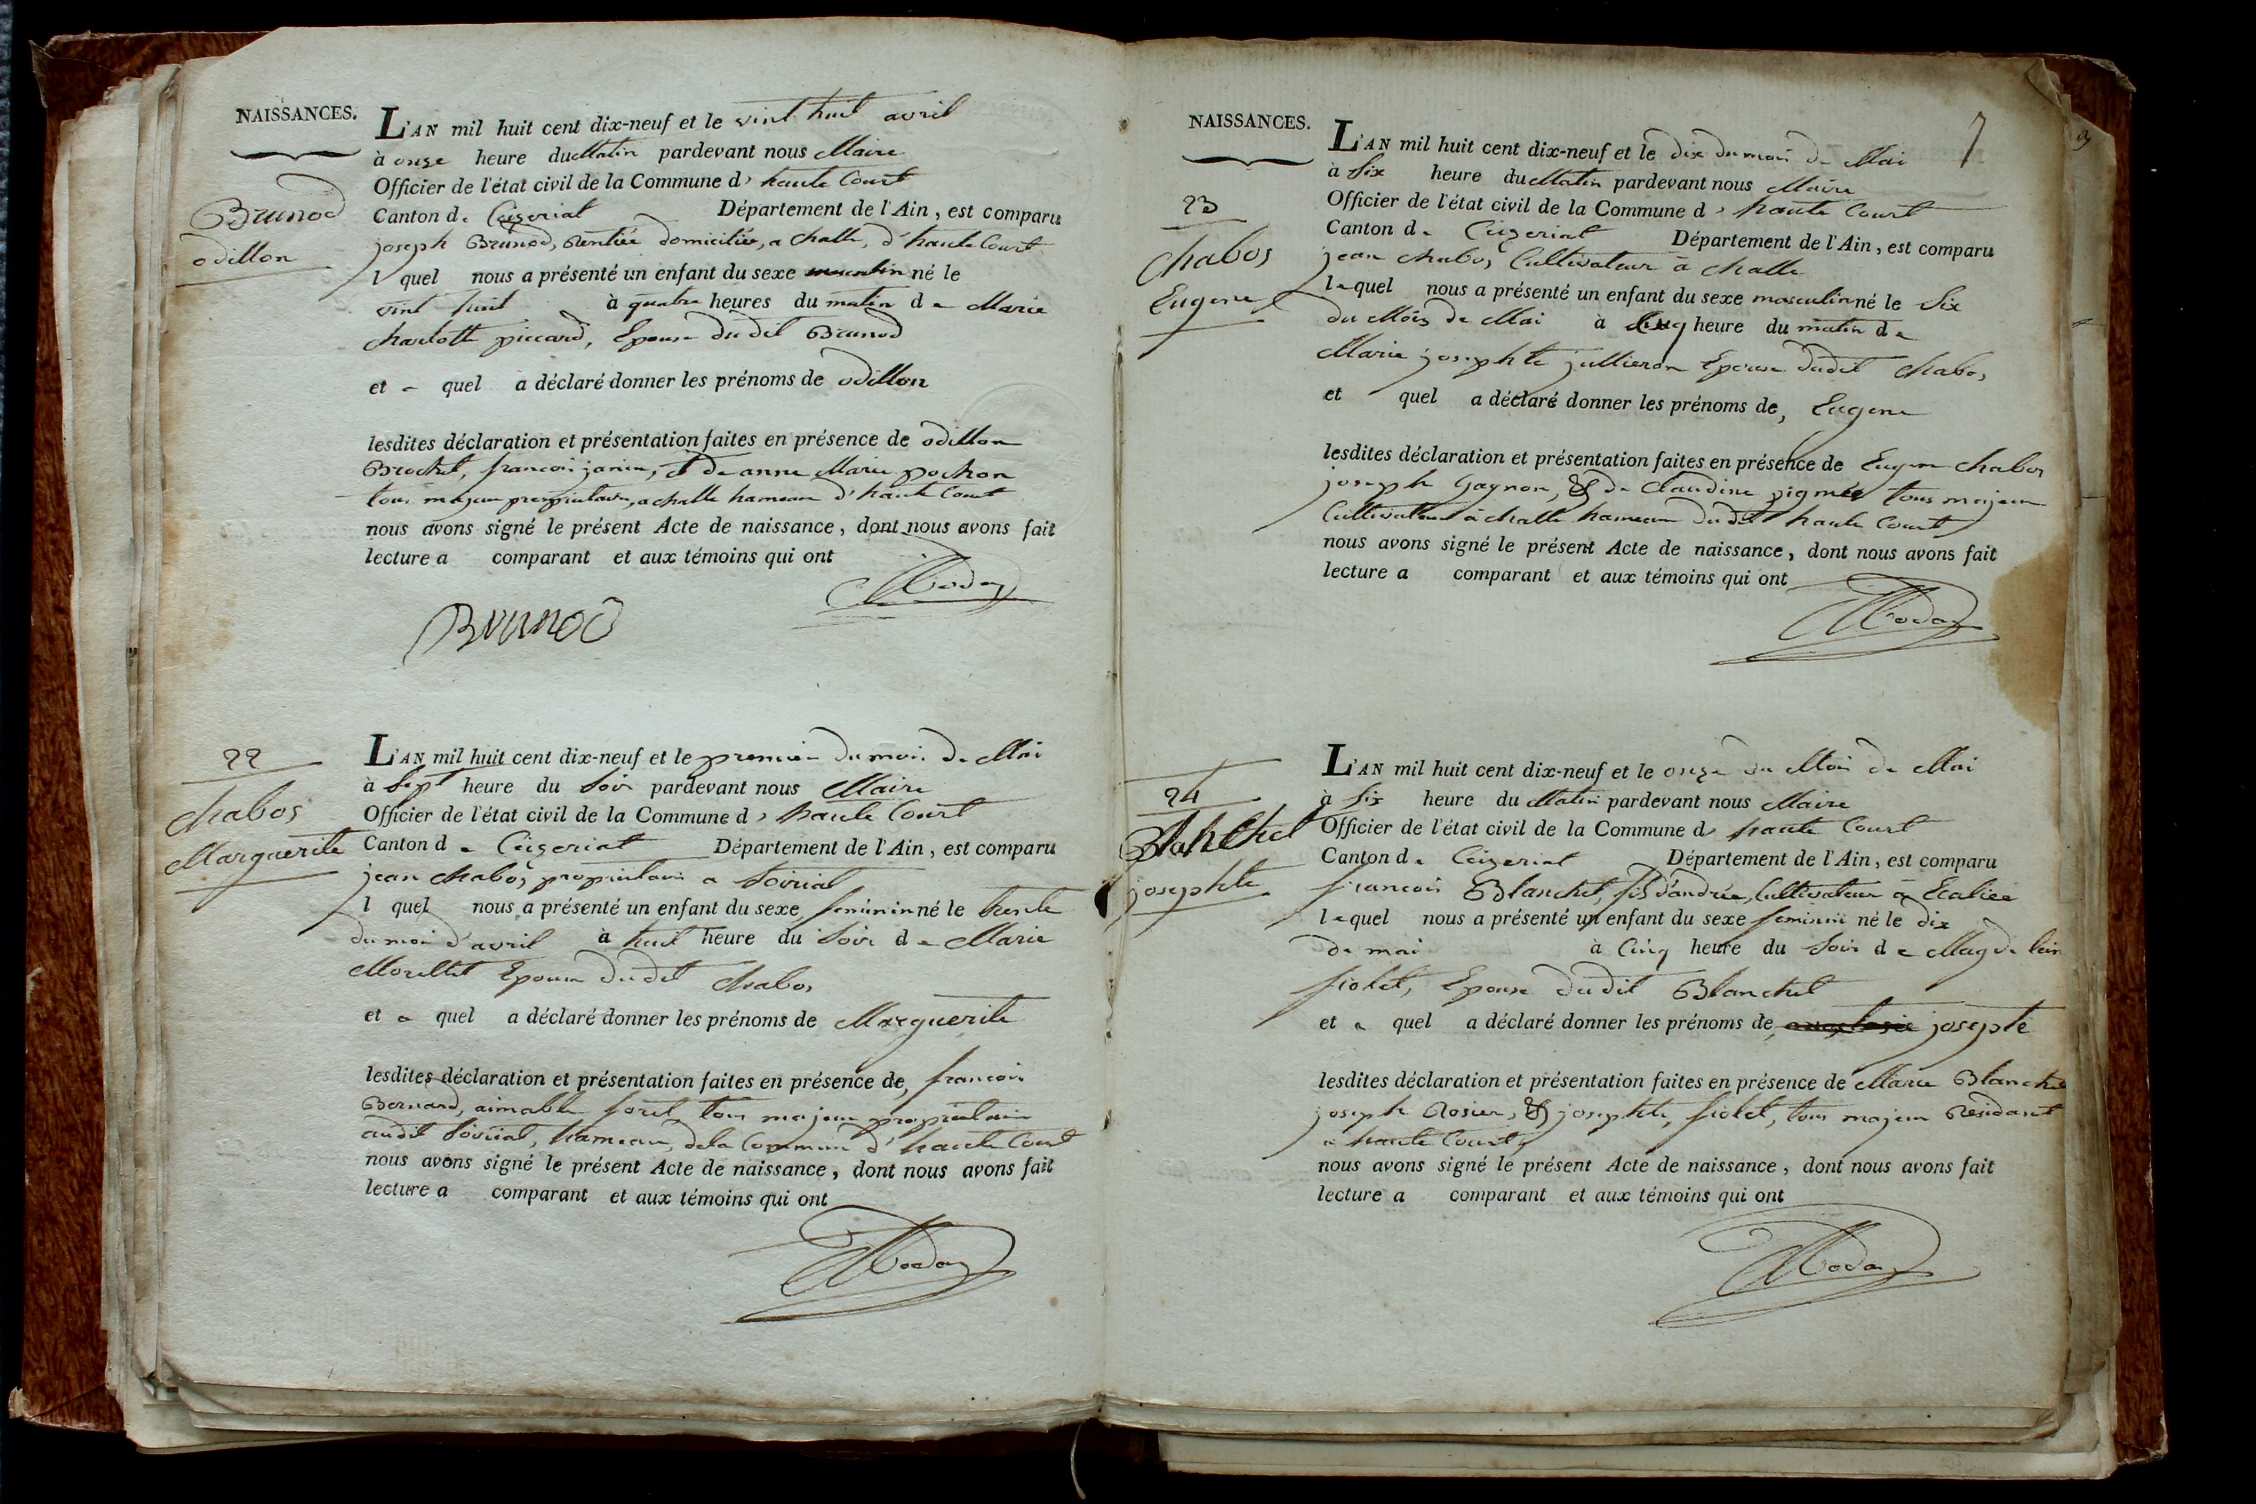 NAISSANCES.
Brunod
odillon
L'AN mil huit cent dix-neuf et le vint huit avril
à onze heure du Matin pardevant nous Maire
Officier de l'état civil de la Commune d' haute Court
Canton de Ceizeriat Département de l'Ain, est comparu
joseph Brunod, Rentiée domiciliée, a challe, d'haute Court
l quel nous a présenté un enfant du sexe masculin né le
vint huit à quatre heures du matin de Marie
charlotte piccard, Epouse du dit Brunod
et a quel a déclaré donner les prénoms de odillon
lesdites déclaration et présentation faites en présence de odillon
Brochet, francois janin, et de anne Marie pochon
tous majeur propriutaire, a challe hameau d'haute Court
nous avons signé le présent Acte de naissance, dont nous avons fait
lecture a comparant et aux témoins qui ont
Brunod
22
chabos
Marguerite
L'AN mil huit cent dix-neuf et le premier du mois de Mai
à Sept heure du Soir pardevant nous Maire
Officier de l'état civil de la Commune d' haute Court
Canton de Ceizeriat Département de l'Ain, est comparu
jean chabos, propriutaire a Soiriat
l quel nous a présenté un enfant du sexe feminin né le trente
du moi d'avril à huit heure du Soir de Marie
Morellet Epouse du dit chabos
et a quel a déclaré donner les prénoms de Marguerite
lesdites déclaration et présentation faites en présence de, francois
Bernard, aimable foret, tous majeur propriutaire
audit Soiriat, hameau, de la Commune d'haute Court
nous avons signé le présent Acte de naissance, dont nous avons fait
lecture a comparant et aux témoins qui ont
NAISSANCES.
7
23
chabos
Eugene
L'AN mil huit cent dix-neuf et le dix du mois de Mai
à Six heure du Matin pardevant nous Maire
Officier de l'état civil de la Commune d' haute Court
Canton de Ceizeriat Département de l'Ain, est comparu
jean chabos Cultivateur à challe
lequel nous a présenté un enfant du sexe masculin né le Six
du Mois de Mai à Cinq heure du matin de
Marie josephte jullieron Epouse dudit chabos
et quel a déclaré donner les prénoms de, Eugene
lesdites déclaration et présentation faites en présence de Eugene chabos
joseph Gagnon, & de Claudine pigmée tous majeur
Cultivateur à challe hameau du dit haute Court
nous avons signé le présent Acte de naissance, dont nous avons fait
lecture a comparant et aux témoins qui ont
24
Blanchet
josephte
L'AN mil huit cent dix-neuf et le onze du Moi de Mai
à Six heure du Matin pardevant nous Maire
Officier de l'état civil de la Commune d' haute Court
Canton de Ceizeriat Département de l'Ain, est comparu
francois Blanchet, fils d'andrée, Cultivateur à
lequel nous a présenté un enfant du sexe feminin né le dix
de mai à Cinq heure du Soir de Magdelein
fiolet, Epouse dudit Blanchet
et a quel a déclaré donner les prénoms de, josepte
lesdites déclaration et présentation faites en présence de Marie Blanchet
joseph Rosier, & josephte, fiolet, tous majeur Residant
a haute Court
nous avons signé le présent Acte de naissance, dont nous avons fait
lecture a comparant et aux témoins qui ont